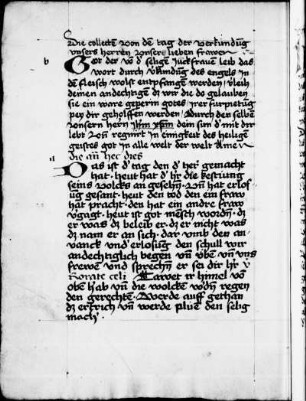 Die collecten von dem tag der verkundūg
unsers herren vonser lieben frawen
b
Got der vō d' selige Jückfrauē leib das
wort durch v'kündūg des engels in
dē fleisch wolst entpfangē werdē / v'leih
deinen andechtigē dz wir die do gelauben
sie ein ware geperin gotes / ir fürpetūg
pey dir geholffen werdē / durch den selbē
vonsern hern dein sun d' mit dir
lebt vō regnirt in einigkeit des heilige
geistes got in alle welt der welt Amē
die an her dies
Das ist d' tag den d' her gemacht
hat · heut hat d' hr̄ die
seins volcks an gesehē vō hat erlos
ūg gesant · heut den tod den ein fraw
hat pracht · den hat ein andre fraw
v'iagt · heut ist got mēsch wordē · dz
er was dz beleib er · dz er nicht was
dz nam er an sich · dar vmb den an
vanck vnd erlosūg den schull wir
andechtiglich begen vn̄ vbē vn̄ vns
frewē vnd sprechē er sei dir hr̄ v
Rorate celi Tawet ir himel vō
obē hab vn̄ die wolckē wdē regen
den gerechtē · Werde auff gethan
dz ertrich vn̄ werde pluē den selig
mach